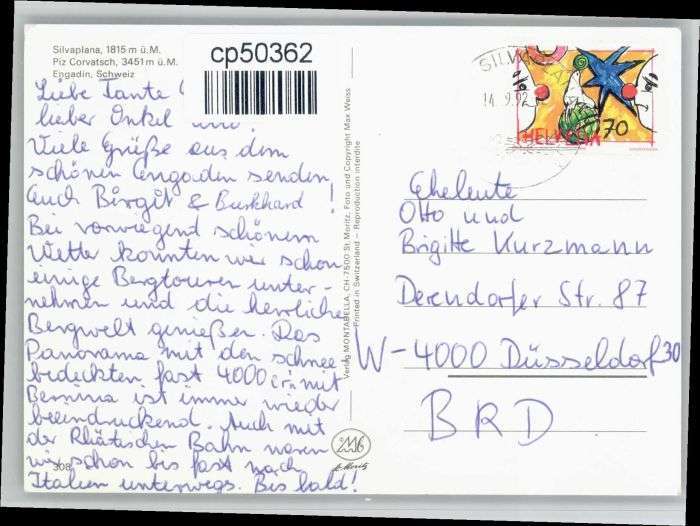 Silvaplana, 1815 m ü.M.
Piz Corvatsch, 3451 m ü.M.
Engadin, Schweiz
cp50362
Liebe Tante
lieber Onkel
Viele Grüße aus dem
schönen Engadin senden
Euch Birgit & Burkhard !
Bei vorwiegend schönem
Wetter konnten wir schon
einige Bergtouren unter-
nehmen und die herrliche
Bergwelt genießen. Das
Panorama mit den schnee
bedeckten fast 4000ern mit
Bernina ist immer wieder
beeindruckend. Auch mit
der Rhätischen Bahn waren
wir schon bis fast nach
Italien unterwegs. Bis bald!
308
Verlag MONTABELLA, CH-7500 St. Moritz, Foto und Copyright Max Weiss
Printed in Switzerland – Reproduction interdite
St. Moritz
SILVA
14.9.92
HELVETIA 70
Eheleute
Otto und
Brigitte Kurzmann
Derendorfer Str. 87
W-4000 Düsseldorf 30
BRD